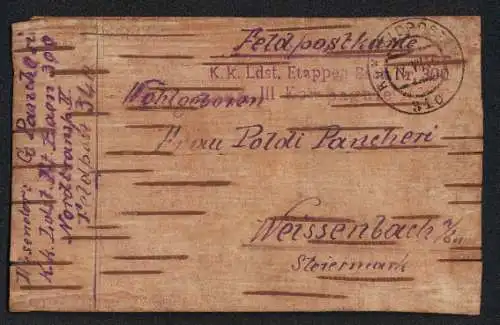 Feldpostkarte
K. k. Ldst. Etappen B
Nr. 300
III
310
Wohlgeboren
Frau Poldi Pancheri
Weissenbach a/En
Steiermark
Pancheri
K.k. Ldst. Et. Baon 300
Nordtransp. II
Feldpost 340